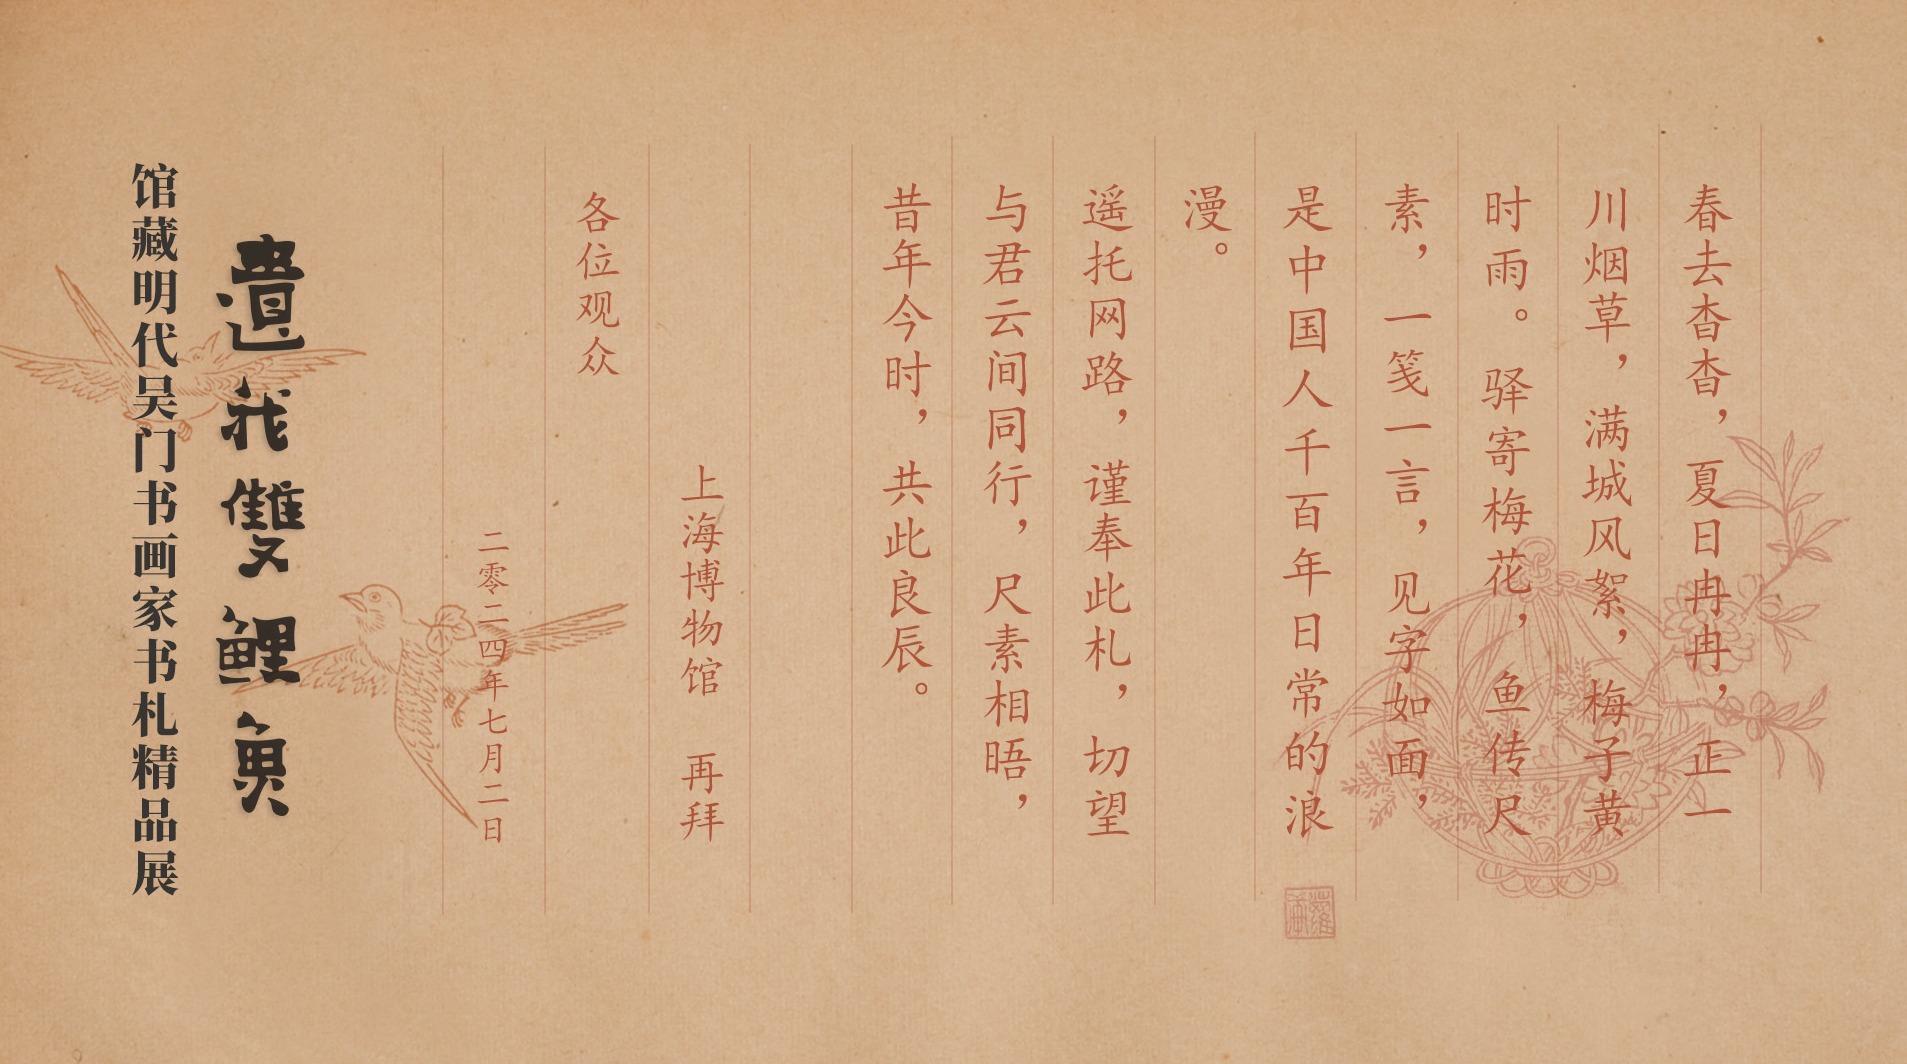 春去杳杳，夏日冉冉，正一
川烟草，满城风絮，梅子黄
时雨。驿寄梅花，鱼传尺
素，一笺一言，见字如面，
是中国人千百年日常的浪
漫。
遥托网路，谨奉此札，切望
与君云间同行，尺素相晤，
昔年今时，共此良辰。
上海博物馆 再拜
各位观众
二零二四年七月二日
遗我雙鲤魚
馆藏明代吴门书画家书札精品展